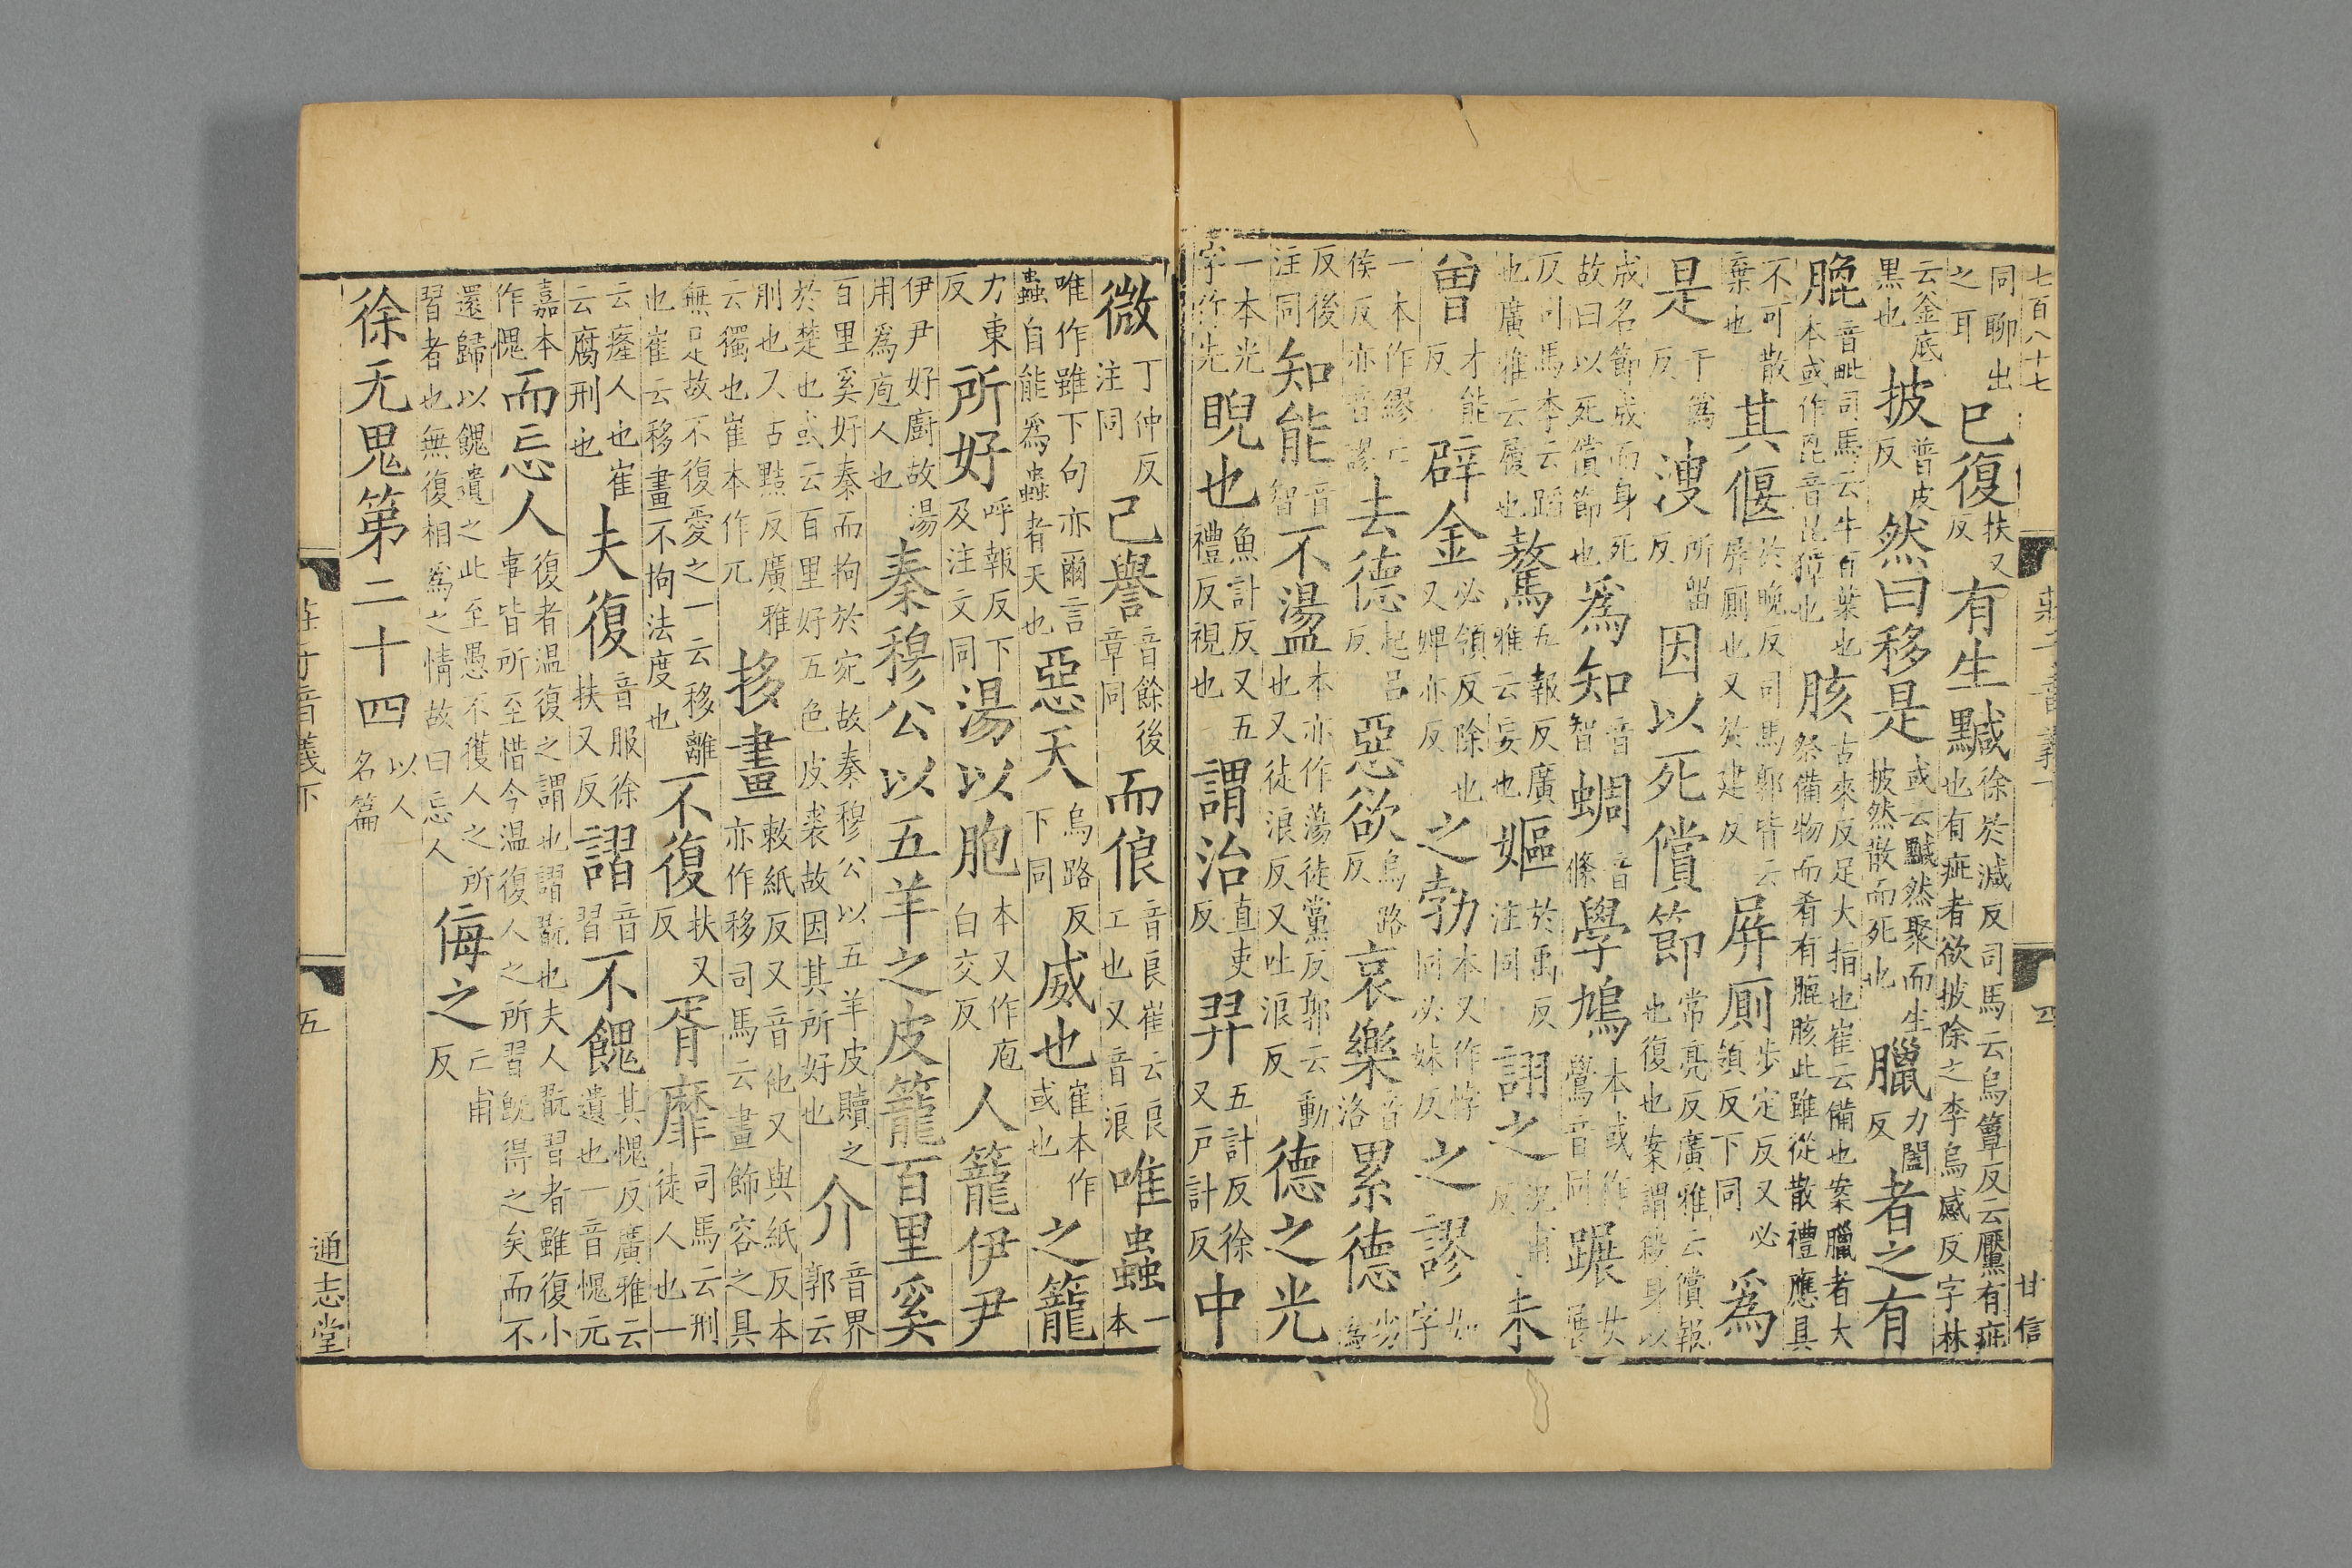 七百八十七 莊子音義下 四 甘信
同聊出之耳 巳復扶又反 有生黬徐於減反司馬云烏簟反云黶有疵也有疵者欲披除之李烏感反字林
云釜底黑也 披普皮反 然曰移是或云黬然聚而生披然散而死也 臘力闔反 者之有
膍音毗司馬云牛百葉也本或作毘音 胲古來反足大指也崔云備也案臘者大祭備物而肴有膍胲此雖從散禮應具
不可散棄也 其偃於晚反司馬郭皆云屏廁也又於建反 屏廁步定反又必領反下同 爲
是于僞反 溲所留反 因以死償節常亮反廣雅云償報也復也案謂殺身以
成名節成而身死故曰以死償節也 爲知音智 蜩音條 學鳩本或作鷽音同 蹍女展
反司馬李云蹈也廣雅云履也 驁五報反廣雅云妄也 嫗於禹反注同 詡之況甫反 未
曾才能反 辟金必領反除也又婢亦反 之勃本又作悖同必妹反 之謬如字
一本作繆亡侯反亦音謬 去德起呂反 惡欲烏路反 哀樂音洛 累德劣僞
反後注同 知能音智 不盪本亦作蕩徒黨反郭云動也又徒浪反又吐浪反 德之光
一本光字作先 睨也魚計反又五禮反視也 謂治直吏反 羿五計反徐又戶計反 中
微丁仲反注同 己譽音餘後章同 而俍音良崔云良工也又音浪 唯蟲一本
唯作雖下句亦爾言蟲自能爲蟲者天也 惡天烏路反下同 威也崔本作或也 之籠
力東反 所好呼報反下及注文同 湯以胞本又作庖白交反 人籠伊尹
伊尹好廚故湯用爲庖人也 秦穆公以五羊之皮籠百里奚
百里奚好秦而拘於宛故秦穆公以五羊皮贖之於楚也或云百里好五色皮裘故因其所好也 介音界郭云
刖也又古黠反廣雅云獨也崔本作兀 拸畫敕紙反又音他又與紙反本亦作移司馬云畫飾容之具
無足故不復愛之一云移離也崔云移畫不拘法度也 不復扶又反 胥靡司馬云刑徒人也一
云癃人也崔云腐刑也 夫復音服徐扶又反 謵音習 不餽其愧反廣雅云遺也一音愧元
嘉本作愧 而忘人復者温復之謂也謵翫也夫人翫習者雖復小事皆所至惜今温復人之所習旣得之矣而不
還歸以餽遺之此至愚不獲人之所習者也無復相爲之情故曰忘人 侮之亡甫反
徐无鬼第二十四以人名篇
莊子音義下 五 通志堂